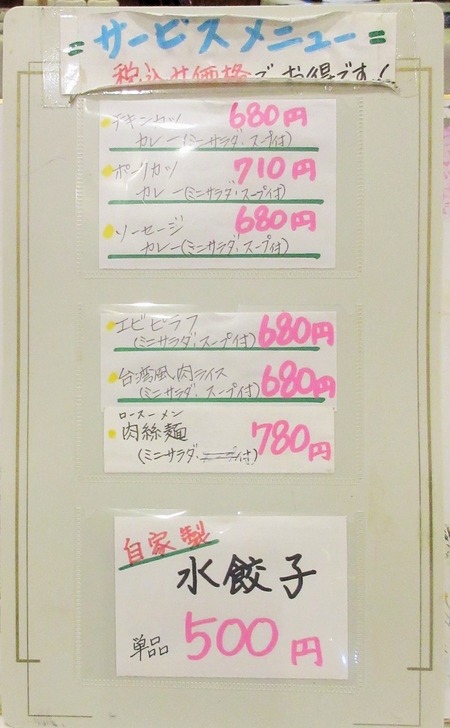 =サービスメニュー=
税込サ価格でお得です!
チキンカツ 680円
カレー(ミニサラダ、スープ付)
ポークカツ 710円
カレー(ミニサラダ、スープ付)
ソーセージ 680円
カレー(ミニサラダ、スープ付)
エビピラフ 680円
(ミニサラダ、スープ付)
台湾風肉ライス 680円
(ミニサラダ、スープ付)
ロースーメン
肉絲麺 780円
(ミニサラダ、付)
自家製
水餃子
単品 500円